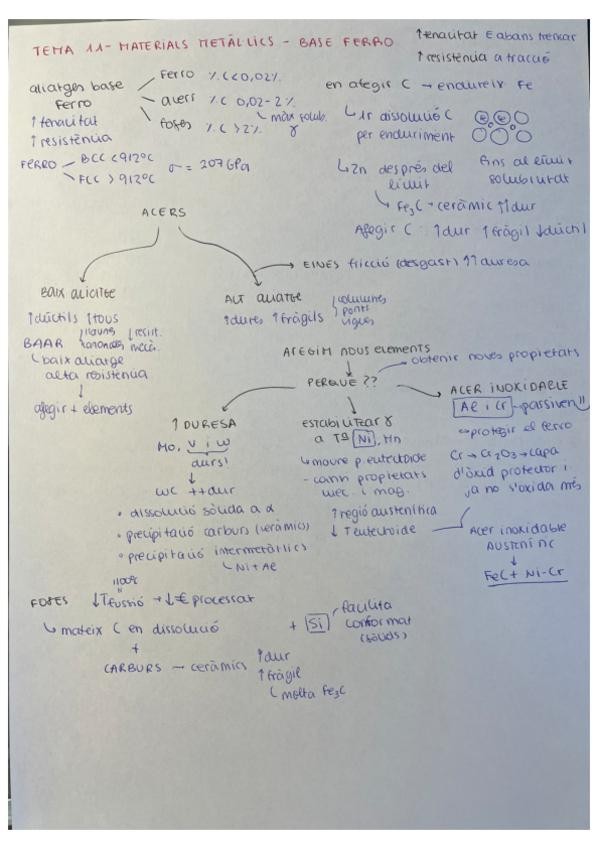 TEMA 11 - MATERIALS METÀL·LICS - BASE FERRO
↑tenacitat E abans trencar
↑resistència a tracció
aliatges base ferro
↑tenacitat
↑resistència
Ferro %C<0,02%
acers %C 0,02-2%
foses %C >2%
màx solub. γ
FERRO
BCC <912ºC
FCC >912ºC
σ = 207 GPa
en afegir C → endureix Fe
1r dissolució C
per enduriment
fins al límit
solubilitat
2n després del
límit
Fe₃C → ceràmic ↑↑dur
Afegir C: ↑dur ↑fràgil ↓dúctil
ACERS
→ EINES fricció (desgast) ↑↑ duresa
BAIX ALIATGE
↑dúctils ↑tous
BAAR
baix aliatge
alta resistència
↓
afegir + elements
resist.
mecà.
ALT ALIATGE
↑dures ↑fràgils
columnes
ponts
vigues
AFEGIM NOUS ELEMENTS
PERQUÈ ??
obtenir noves propietats
↑DURESA
Mo, V i W
durs!
↓
WC ++dur
• dissolució sòlida a α
• precipitació carburs (ceràmics)
• precipitació intermetàl·lics
Ni + Al
ESTABILITZAR γ
a Tª Ni, Mn
moure p. eutectoide
- canvi propietats
mec. i mag.
↑regió austenítica
↓ Teutectoide
ACER INOXIDABLE
Al i Cr - passiven!!
⇨protegir el ferro
Cr → Cr₂O₃ → capa
d'òxid protector i
ja no s'oxida més
Acer inoxidable
AUSTENÍTIC
↓
FeC + Ni-Cr
FOSES
1100ºC
↓Tfusió → ↓€ processat
mateix C en dissolució
+
CARBURS → ceràmics
↑dur
↑fràgil
molta Fe₃C
+ Si
facilita
conformat
(sòlids)